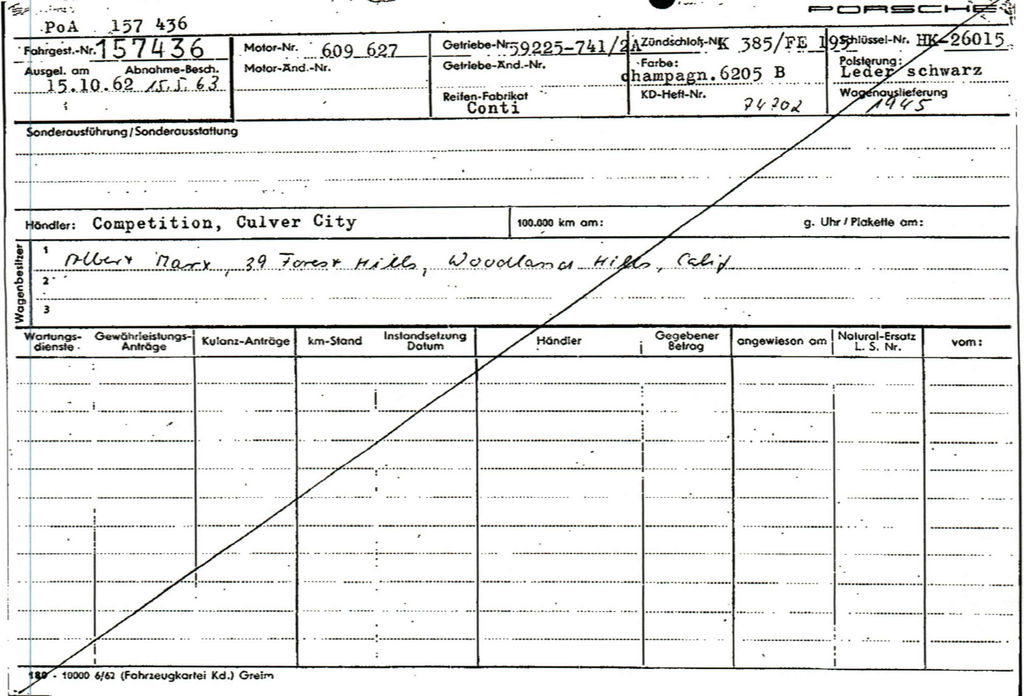 PORSCHE
PoA 157 436
Fahrgest.-Nr. 157436
Motor-Nr. 609 627
Getriebe-Nr. 59225-741/2A
Zündschloß-Nr. K 385/FE 195
Schlüssel-Nr. HK-26015
Ausgel. am Abnahme-Besch.
15.10.62 15.5.63
Motor-Änd.-Nr.
Getriebe-Änd.-Nr.
Farbe:
champagn.6205 B
Polsterung:
Leder schwarz
Reifen-Fabrikat
Conti
KD-Heft-Nr. 74702
Wagenauslieferung
1945
Sonderausführung/Sonderausstattung
Händler: Competition, Culver City
100.000 km am:
g. Uhr / Plakette am:
Wagenbesitzer
1 Albert Marx, 39 Forest Hills, Woodland Hills, Calif
2
3
Wartungs-dienste Gewährleistungs-Anträge Kulanz-Anträge km-Stand Instandsetzung Datum Händler Gegebener Betrag angewiesen am Natural-Ersatz L. S. Nr. vom:
180 - 10000 6/62 (Fahrzeugkartei Kd.) Greim